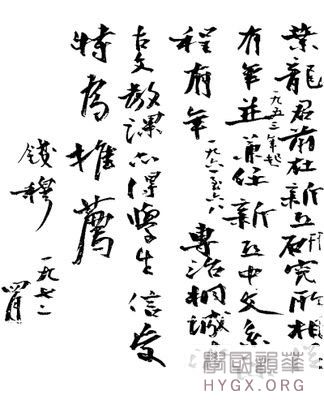 葉龍君前在新亞研究所相
有年一九五三年起並兼任新亞中文系
程有年一九六一至六八專治桐城
古文教課亦得學生信受
特為推薦
錢穆
一九七二
四月
華韻國學
HYGX.ORG